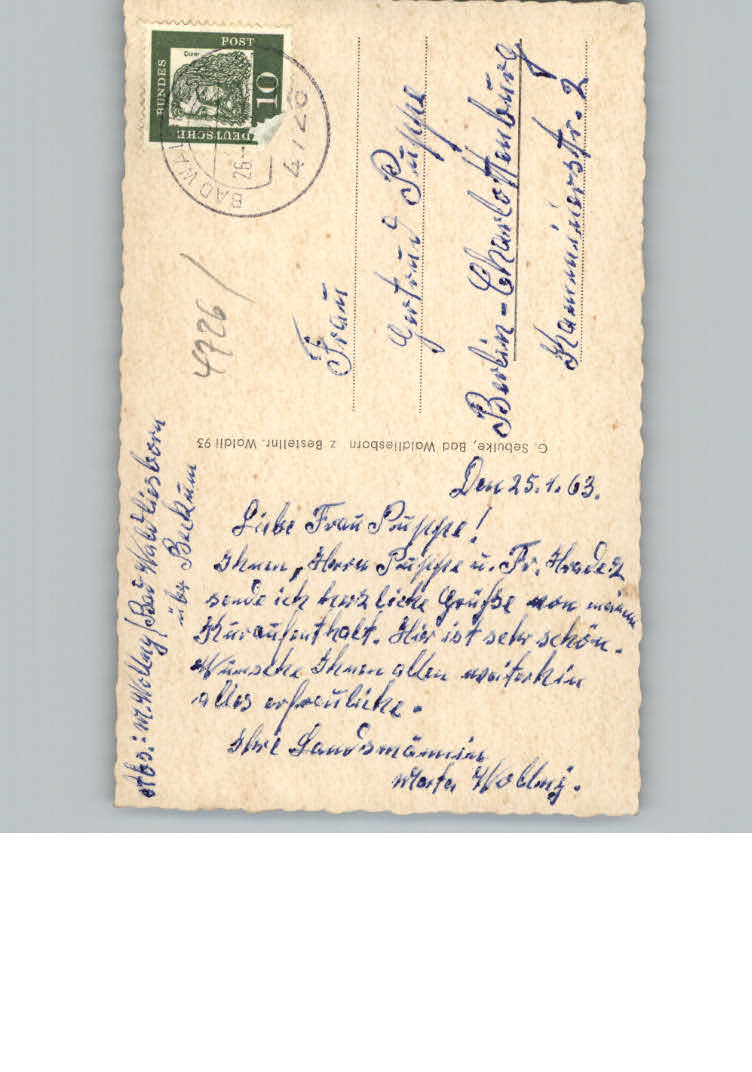 BUNDES
POST
DEUTSCHE
10
Dürer
BAD WAL
26.
4726 /
Frau
Gertrud Puppe
Berlin-Charlottenburg
Kamminerstr. 2
G. Sebulke, Bad Waldliesborn z Bestellnr. Waldli 93
Abs.: M. Wollny / Bad Waldliesborn
über Beckum
Den 25.1.63.
Liebe Frau Puppe!
Ihnen, Herrn Puppe u. Fr.
sende ich herzliche Grüße von meinem
Kuraufenthalt. Hier ist sehr schön.
Wünsche Ihnen allen weiterhin
alles erfreuliche.
Ihre Landsmännin
Marta Wollny.